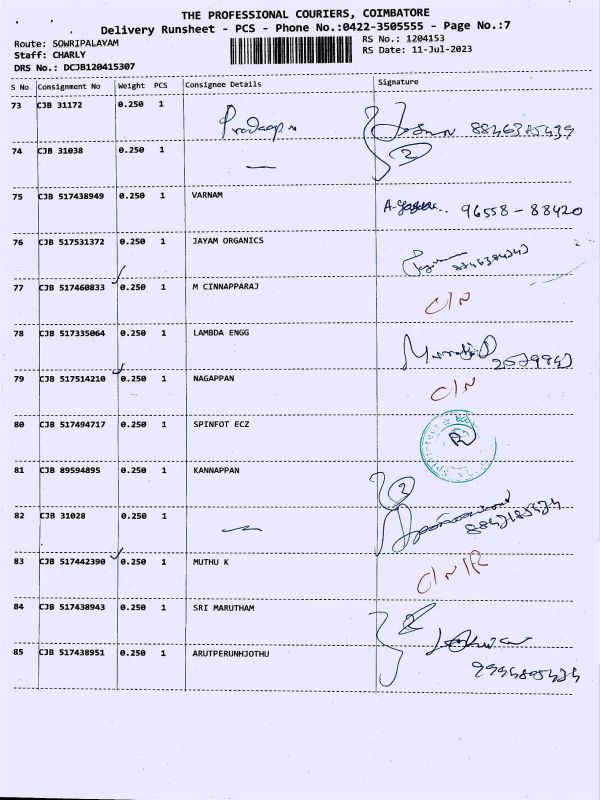 THE PROFESSIONAL COURIERS, COIMBATORE
Delivery Runsheet - PCS - Phone No.:0422-3505555 - Page No.:7
Route: SOWRIPALAYAM
RS No.: 1204153
Staff: CHARLY
RS Date: 11-Jul-2023
DRS No.: DCJB120415307
S No Consignment No Weight PCS Consignee Details Signature
73 CJB 31172 0.250 1
74 CJB 31038 0.250 1 2
75 CJB 517438949 0.250 1 VARNAM 96558-88420
76 CJB 517531372 0.250 1 JAYAM ORGANICS
77 CJB 517460833 0.250 1 M CINNAPPARAJ C/N
78 CJB 517335064 0.250 1 LAMBDA ENGG
79 CJB 517514210 0.250 1 NAGAPPAN C/N
80 CJB 517494717 0.250 1 SPINFOT ECZ
81 CJB 89594895 0.250 1 KANNAPPAN 2
82 CJB 31028 0.250 1
83 CJB 517442390 0.250 1 MUTHU K C/N/R
84 CJB 517438943 0.250 1 SRI MARUTHAM 2
85 CJB 517438951 0.250 1 ARUTPERUNHJOTHU